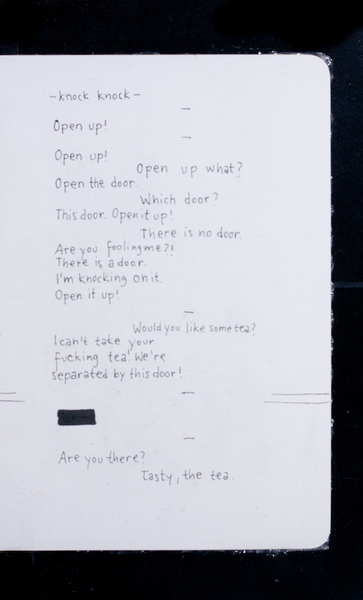 -knock knock-
–
Open up!
–
Open up!
Open up what?
Open the door.
Which door?
This door. Open it up!
There is no door.
Are you fooling me?!
There is a door.
I'm knocking on it.
Open it up!
–
Would you like some tea?
I can't take your
fucking tea! We're
separated by this door!
–
–
Are you there?
Tasty, the tea.